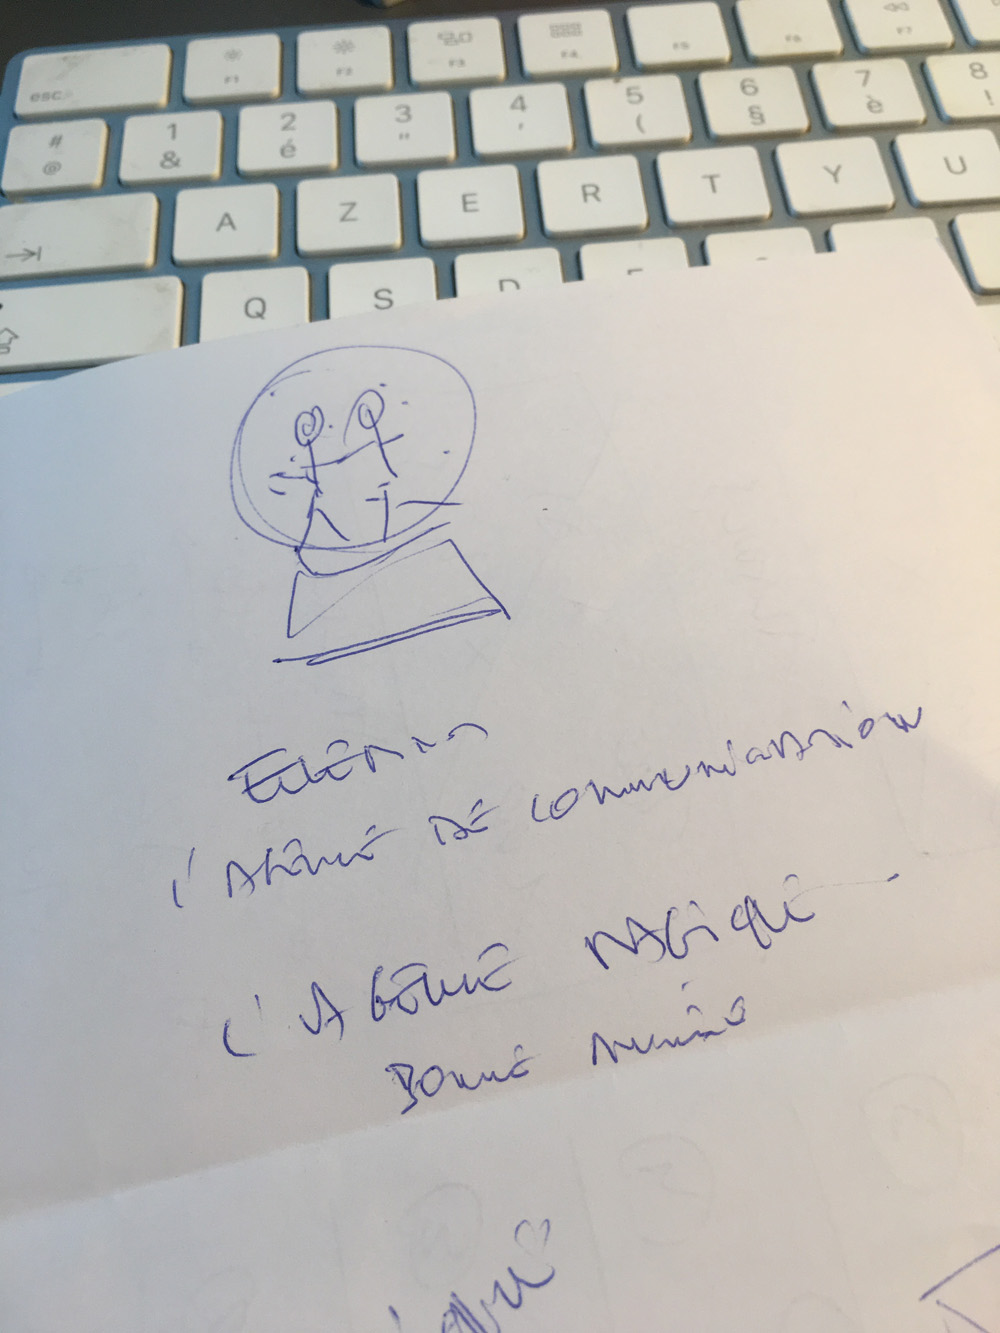 esc F1 F2 F3 F4 F5 F6 F7
# 1 2 3 4 5 6 7 8
@ & é " ' ( § è !
A Z E R T Y U
Q S D
L'AGENCE DE COMMUNICATION
L'AGENCE MAGIQUE
BONNE ANNÉE